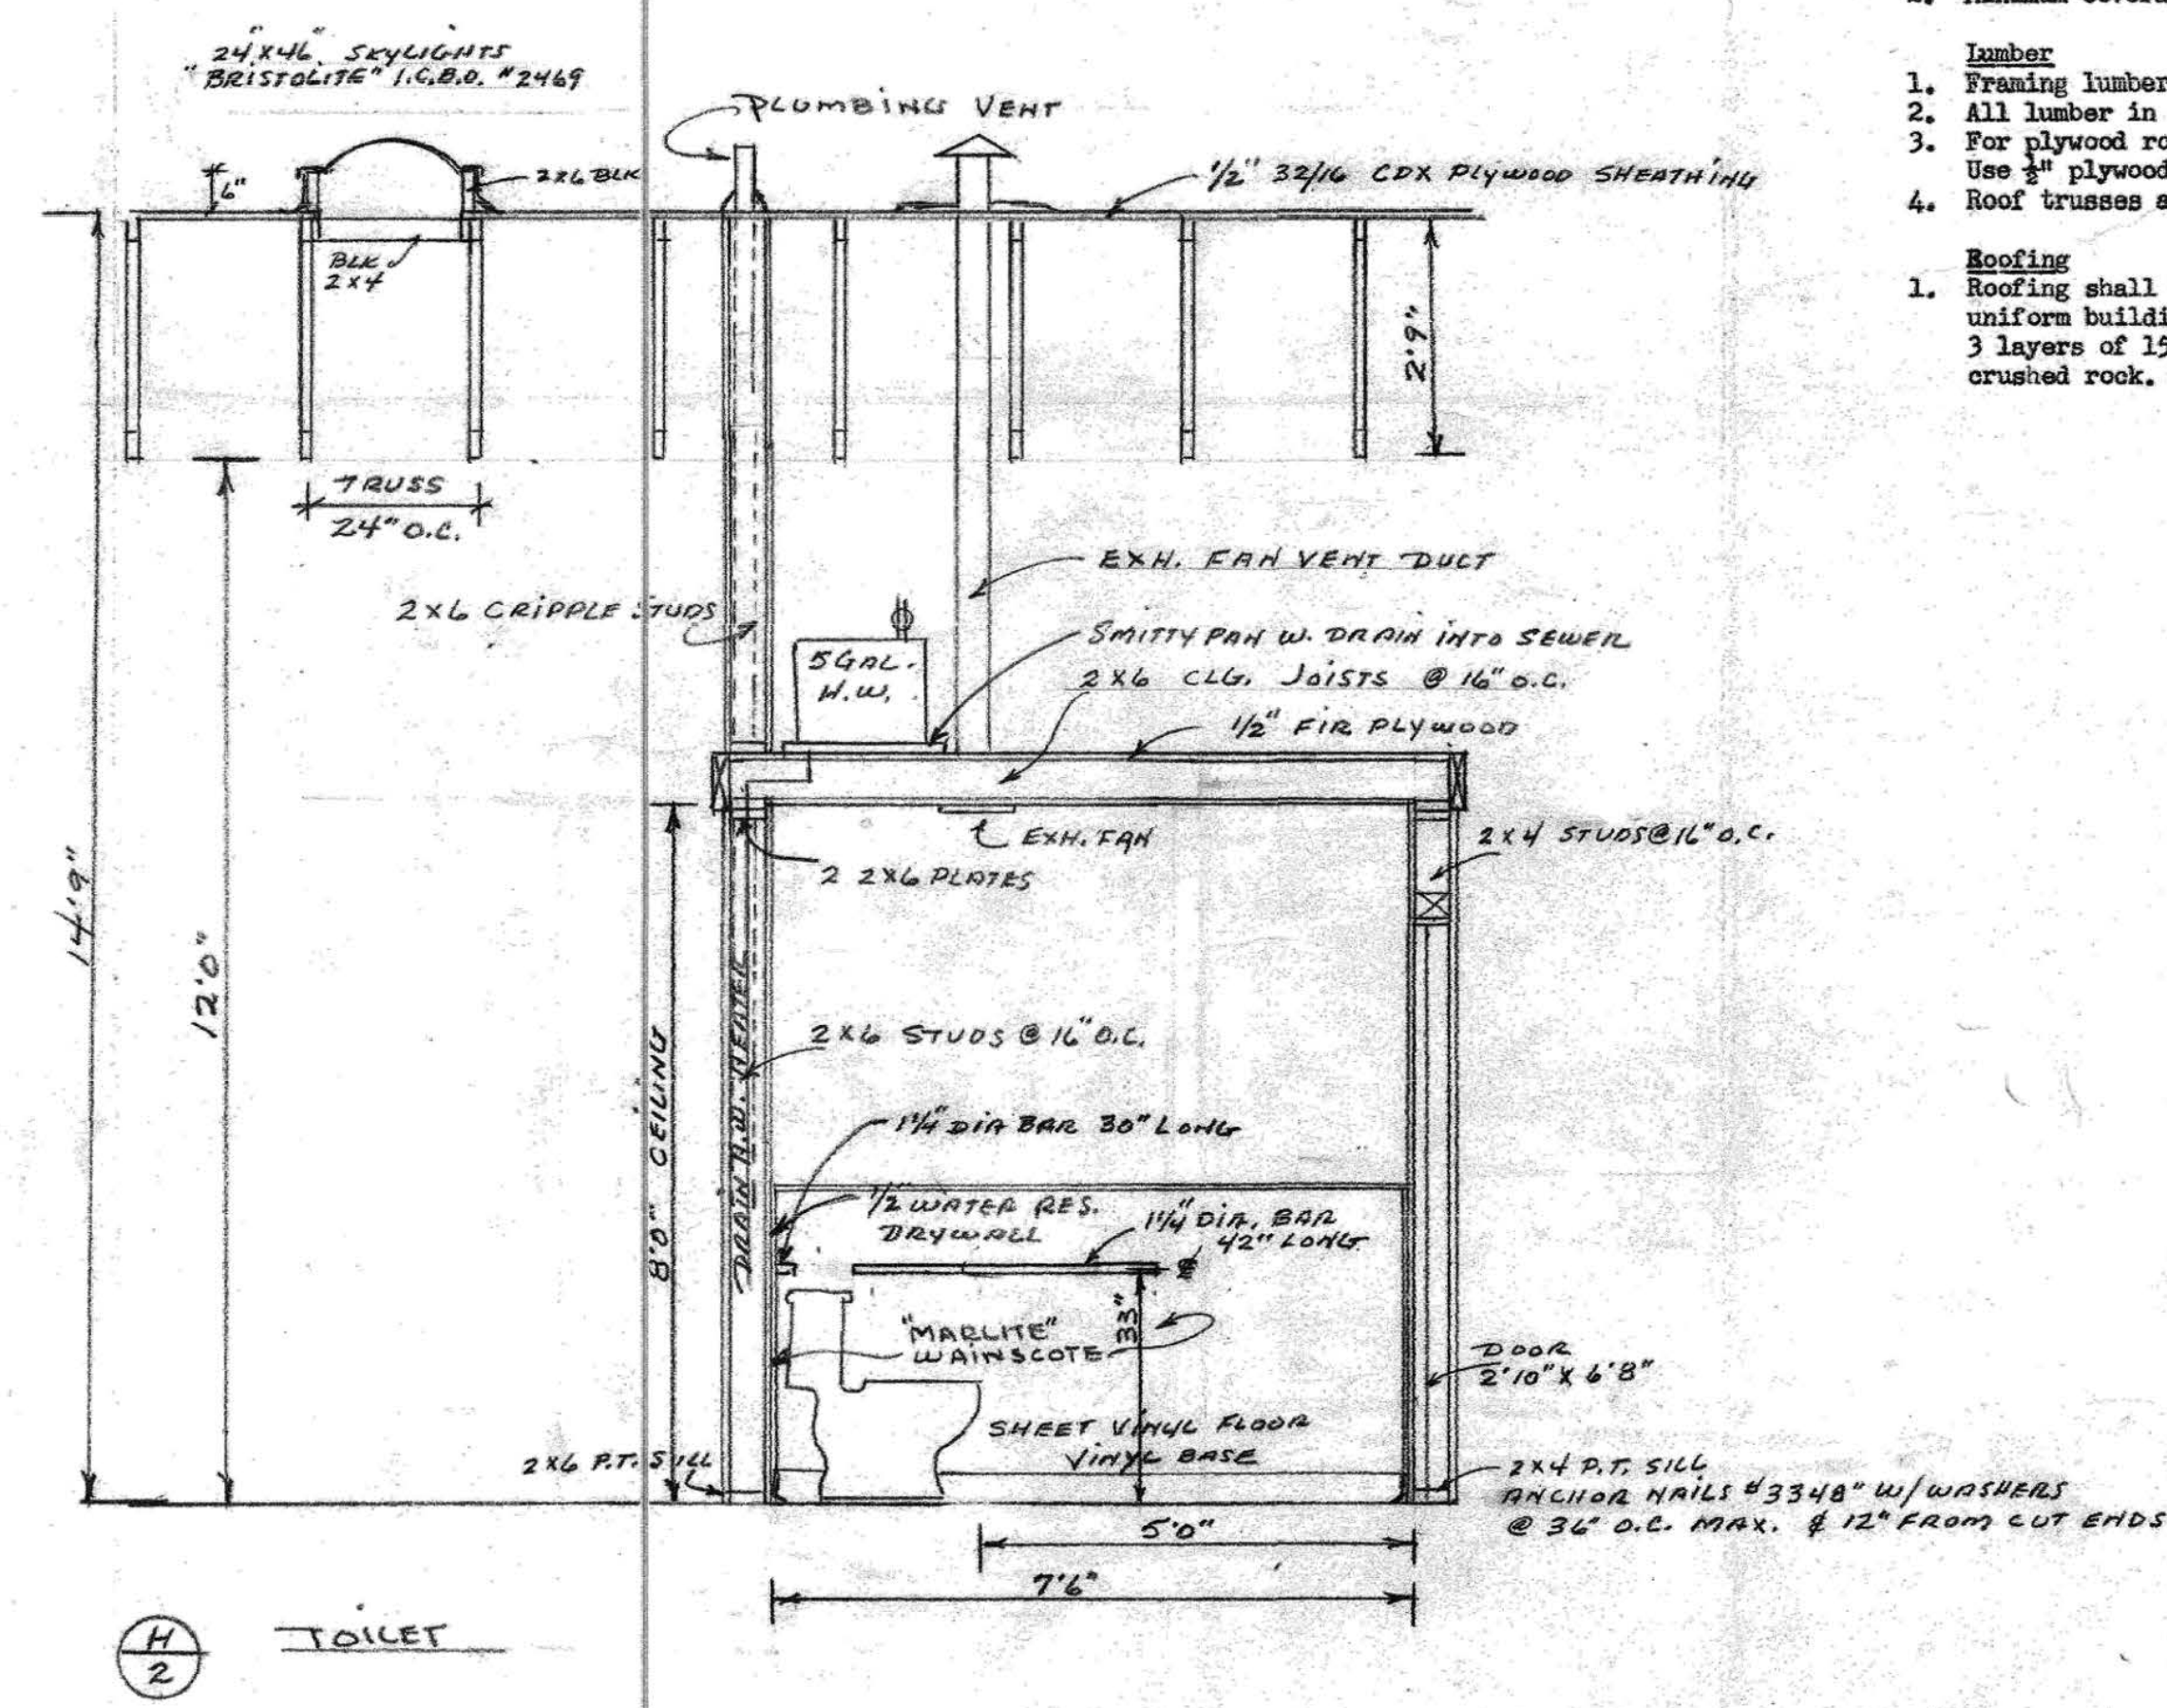 24"X46" SKYLIGHTS
"BRISTOLITE" I.C.B.O. #2469
PLUMBING VENT
6"
2X6 BLK
1/2" 32/16 CDX PLYWOOD SHEATHING
BLK
2X4
2'9"
TRUSS
24" O.C.
EXH. FAN VENT DUCT
2X6 CRIPPLE STUDS
SMITTY PAN W. DRAIN INTO SEWER
5 GAL.
H.W.
2X6 CLG. JOISTS @ 16" O.C.
1/2" FIR PLYWOOD
EXH. FAN
2X4 STUDS @ 16" O.C.
2 2X6 PLATES
14'9"
12'0"
8'0" CEILING
DRAIN H.W. HEATER
2X6 STUDS @ 16" O.C.
1 1/4" DIA BAR 30" LONG
1/2" WATER RES.
DRYWALL
1 1/4" DIA. BAR
42" LONG
33"
"MARLITE"
WAINSCOTE
DOOR
2'10" X 6'8"
SHEET VINYL FLOOR
VINYL BASE
2X6 P.T. SILL
2X4 P.T. SILL
ANCHOR NAILS #3348" W/ WASHERS
@ 36" O.C. MAX. & 12" FROM CUT ENDS
5'0"
7'6"
H
2
TOILET
Lumber
1. Framing lumber
2. All lumber in
3. For plywood
Use ½" plywood
4. Roof trusses
Roofing
1. Roofing shall
uniform
3 layers of
crushed rock.